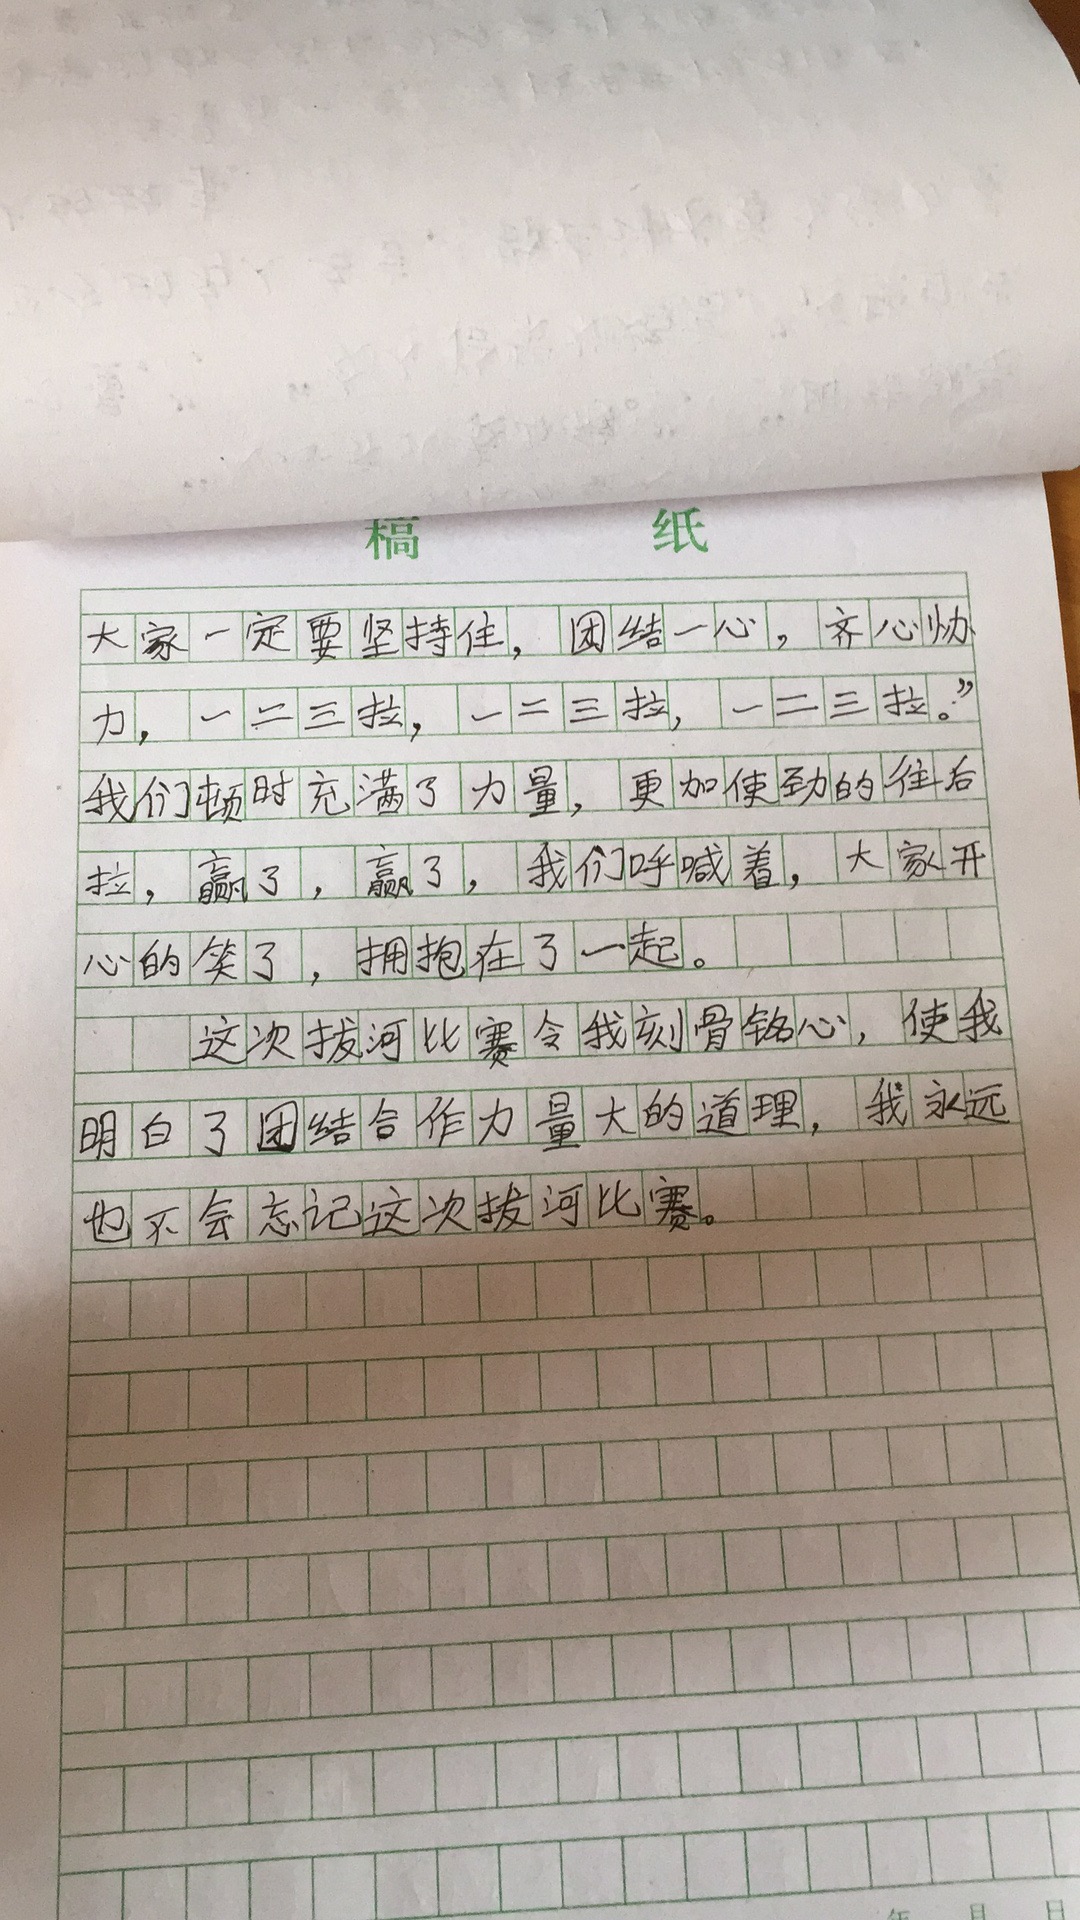 稿 纸
大家一定要坚持住，团结一心，齐心协
力，一二三拉，一二三拉，一二三拉。”
我们顿时充满了力量，更加使劲的往后
拉，赢了，赢了，我们呼喊着，大家开
心的笑了，拥抱在了一起。
这次拔河比赛令我刻骨铭心，使我
明白了团结合作力量大的道理，我永远
也不会忘记这次拔河比赛。
年 月 日